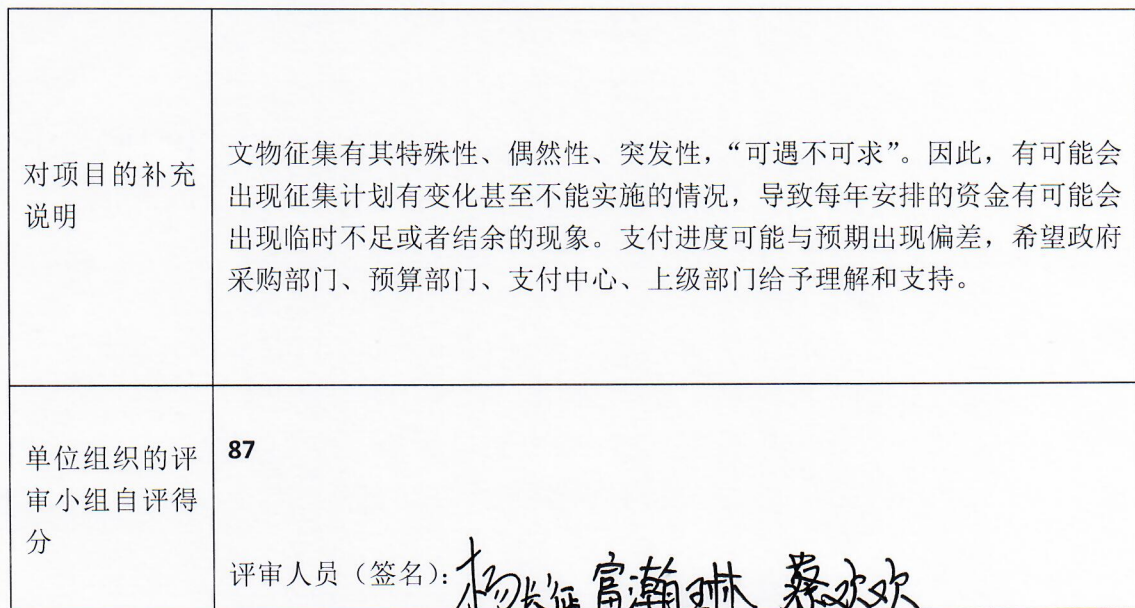 对项目的补充
说明
文物征集有其特殊性、偶然性、突发性，“可遇不可求”。因此，有可能会
出现征集计划有变化甚至不能实施的情况，导致每年安排的资金有可能会
出现临时不足或者结余的现象。支付进度可能与预期出现偏差，希望政府
采购部门、预算部门、支付中心、上级部门给予理解和支持。
单位组织的评
审小组自评得
分
87
评审人员（签名）：杨长征 富瀚琳 蔡欢欢